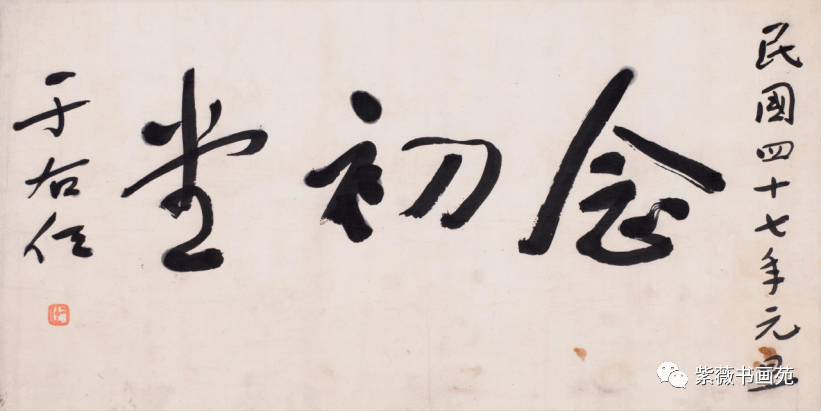 民國四十七年元旦
念初堂
于右任
紫薇书画苑